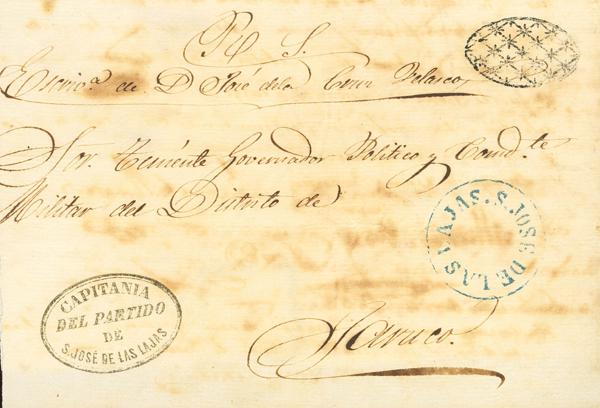 R. S.
Escrivª. de D José dela Cruz Velasco,
Sor. Teniénte Governador Politico y Comd.te
Militar del Distrito de
S. JOSE DE LAS LAJAS.
CAPITANIA
DEL PARTIDO
DE
S. JOSÉ DE LAS LAJAS
Jaruco.